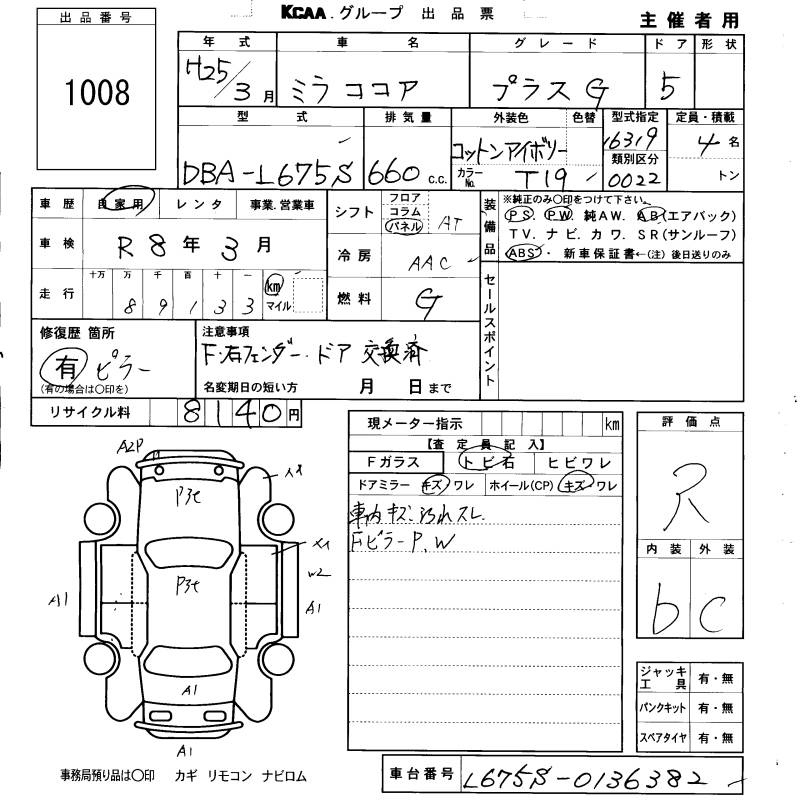 KCAA.グループ 出品票
主催者用
出品番号
1008
年式 車名 グレード ドア 形状
H25/3月 ミラココア プラスG 5
型式 排気量 外装色 色替 型式指定 定員・積載
DBA-L675S 660 c.c. コットンアイボリー 16319 4名
カラーNo. T19 類別区分 0022 トン
車歴 自家用 レンタ 事業.営業車
車検 R8年3月
走行 十万 万 千 百 十 一
89133 km マイル
シフト フロア コラム パネル AT
冷房 AAC
燃料 G
装備品 ※純正のみ○印をつけて下さい。
PS. PW. 純AW. AB(エアバック)
TV. ナビ. カワ. SR(サンルーフ)
ABS・ 新車保証書←(注)後日送りのみ
セールスポイント
修復歴 箇所
有 ピラー
(有の場合は○印を)
注意事項
F・右フェンダー・ドア 交換済
名変期日の短い方 月 日まで
リサイクル料 8140円
現メーター指示 km
【査定員記入】
Fガラス トビ石 ヒビワレ
ドアミラー キズ ワレ ホイール(CP) キズ ワレ
車内キズ.汚れスレ.
Fピラー P.W
評価点
R
内装 外装
b C
ジャッキ工具 有・無
パンクキット 有・無
スペアタイヤ 有・無
A2P
P3t
P3t
W2
A1
A1
A1
A1
事務局預り品は○印 カギ リモコン ナビロム
車台番号 L675S-0136382